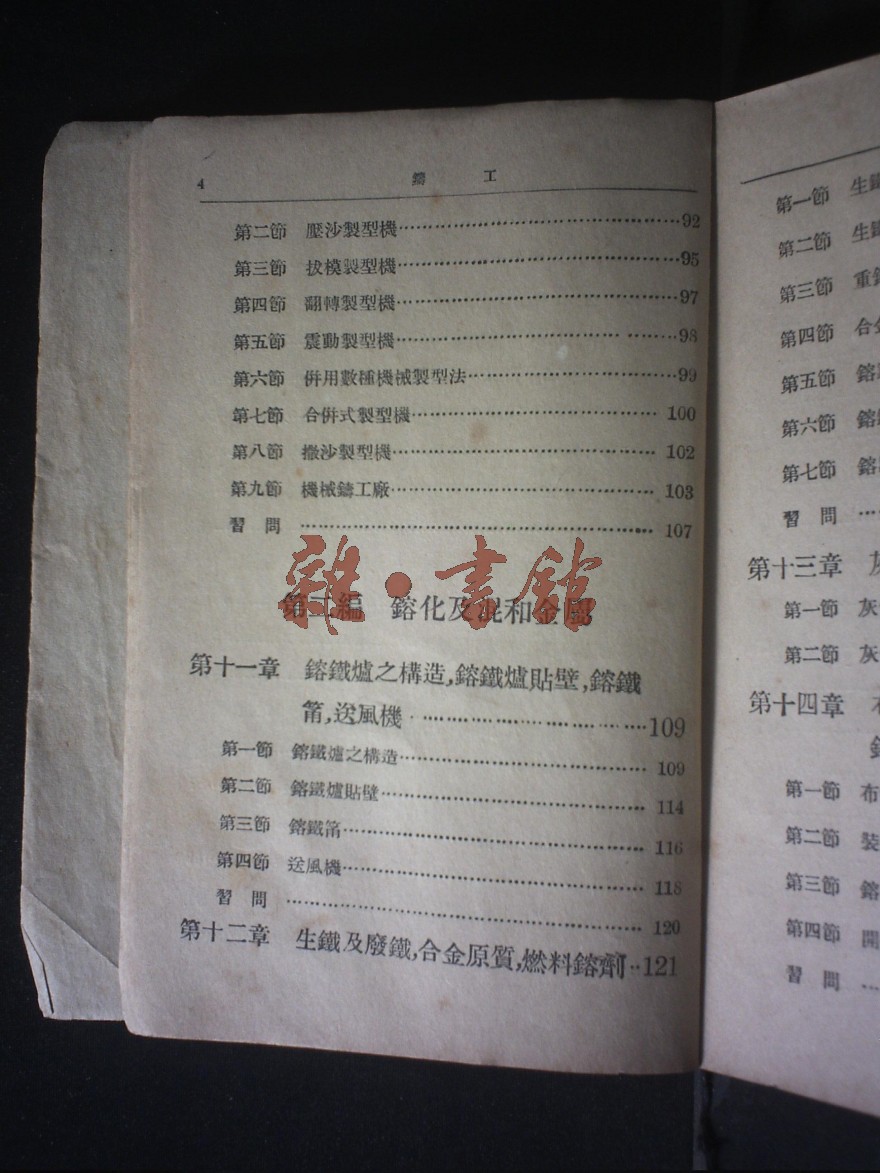 4 鎔 工
第二節 壓沙製型機 92
第三節 拔模製型機 95
第四節 翻轉製型機 97
第五節 震動製型機 98
第六節 併用數種機械製型法 99
第七節 合併式製型機 100
第八節 撒沙製型機 102
第九節 機械鑄工廠 103
習 問 107
雜·書館
第二編 鎔化及混和金屬
第十一章 鎔鐵爐之構造,鎔鐵爐貼壁,鎔鐵
筩,送風機 109
第一節 鎔鐵爐之構造 109
第二節 鎔鐵爐貼壁 114
第三節 鎔鐵筩 116
第四節 送風機 118
習 問 120
第十二章 生鐵及廢鐵,合金原質,燃料鎔劑 121
第一節 生鐵
第二節 生鐵
第三節 重
第四節 合金
第五節 鎔
第六節 鎔
第七節 鎔
習 問
第十三章 灰
第一節 灰
第二節 灰
第十四章
第一節 布
第二節 裝
第三節 鎔
第四節 開
習 問